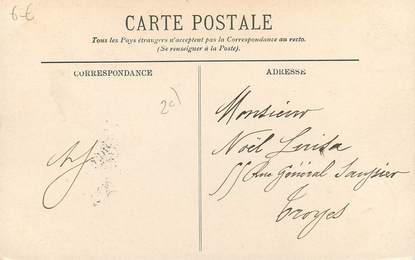 6-€
CARTE POSTALE
Tous les Pays étrangers n'acceptent pas la Correspondance au recto.
(Se renseigner à la Poste)
CORRESPONDANCE
ADRESSE
Monsieur
Noël
Rue Général Saussier
Troyes